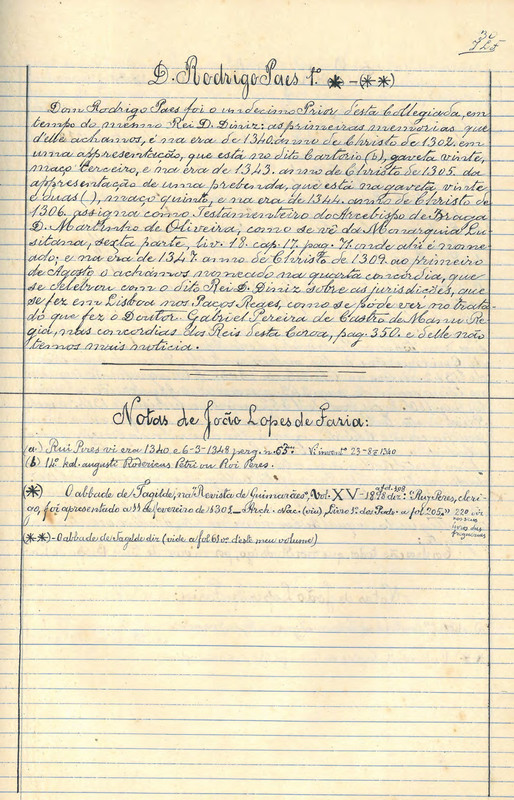 D. Rodrigo Paes 1º ✱ - (✱✱)
Dom Rodrigo Paes foi o undecimo Prior d'esta Collegiada, em
tempo do mesmo Rei D. Diniz: as primeiras memorias que
d'elle achamos, é na era de 1340. anno de Christo de 1302. em
uma appresentação, que está no dito Cartorio (b), gaveta vinte,
maço terceiro, e na era de 1343. anno de Christo de 1305. da
appresentação de uma prebenda, que está na gaveta vinte
e duas ( ), maço quinto, e na era de 1344. anno de Christo de
1306. assigna como Testamenteiro do Arcebispo de Braga
D. Martinho de Oliveira, como se vê da Monarquia Lu-
sitana, sexta parte, liv. 18. cap. 17. pag. onde ahi é nome-
ado; e na era de 1347. anno de Christo de 1309. ao primeiro
de Agosto o achâmos nomeado na quarta concordia, que
se celebrou com o dito Rei D. Diniz sobre as jurisdicões, que
se fez em Lisboa nos Paços Reaes, como se póde ver no trata-
do que fez o Doutor Gabriel Pereira de Castro de Manu Re-
gia, nas concordias dos Reis desta Coroa, pag. 350. e d'elle não
temos mais noticia.
Notas de João Lopes de Faria:
(a) Rui Peres vi era 1340 e 6-3-1348 perg. n. 65. V. invent. 23-8-1340
(b) 14º kal. augusti Rodericus Petri ou Roi Peres.
(✱) O abbade de Tagilde, na "Revista de Guimarães", Vol. XV - 1898 a fol. 108 diz: "Ruy Peres, cleri-
go, foi apresentado a 11 de fevereiro de 1301 - Arch. Nac. Livro 1º das Doaç. a fol. 205." 220
(✱✱) - O abbade de Tagilde diz (vide a fol 61 vº. d'este meu volume)